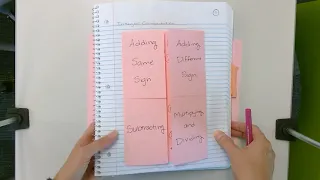 Integer
Adding
Same
Sign
Adding
Different
Sign
Subtracting
Multiplying
and
Dividing